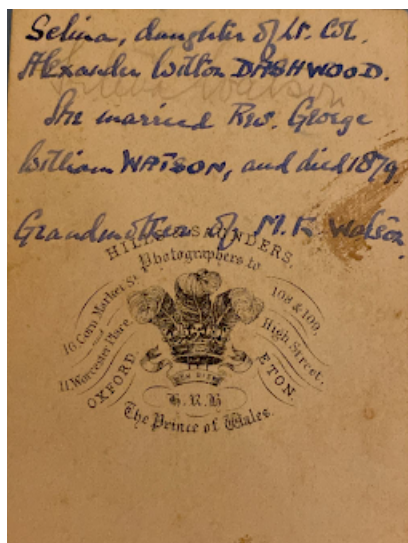 Selina, daughter of Lt. Col.
Alexander Wilton DASHWOOD.
She married Rev. George
William WATSON, and died 1879.
Grandmother of M.K. Watson.
HILLS & SAUNDERS,
Photographers to
16, Corn Market St.
and
11, Worcester Place,
OXFORD
108 & 109,
High Street,
ETON
ICH DIEN
H.R.H
The Prince of Wales.